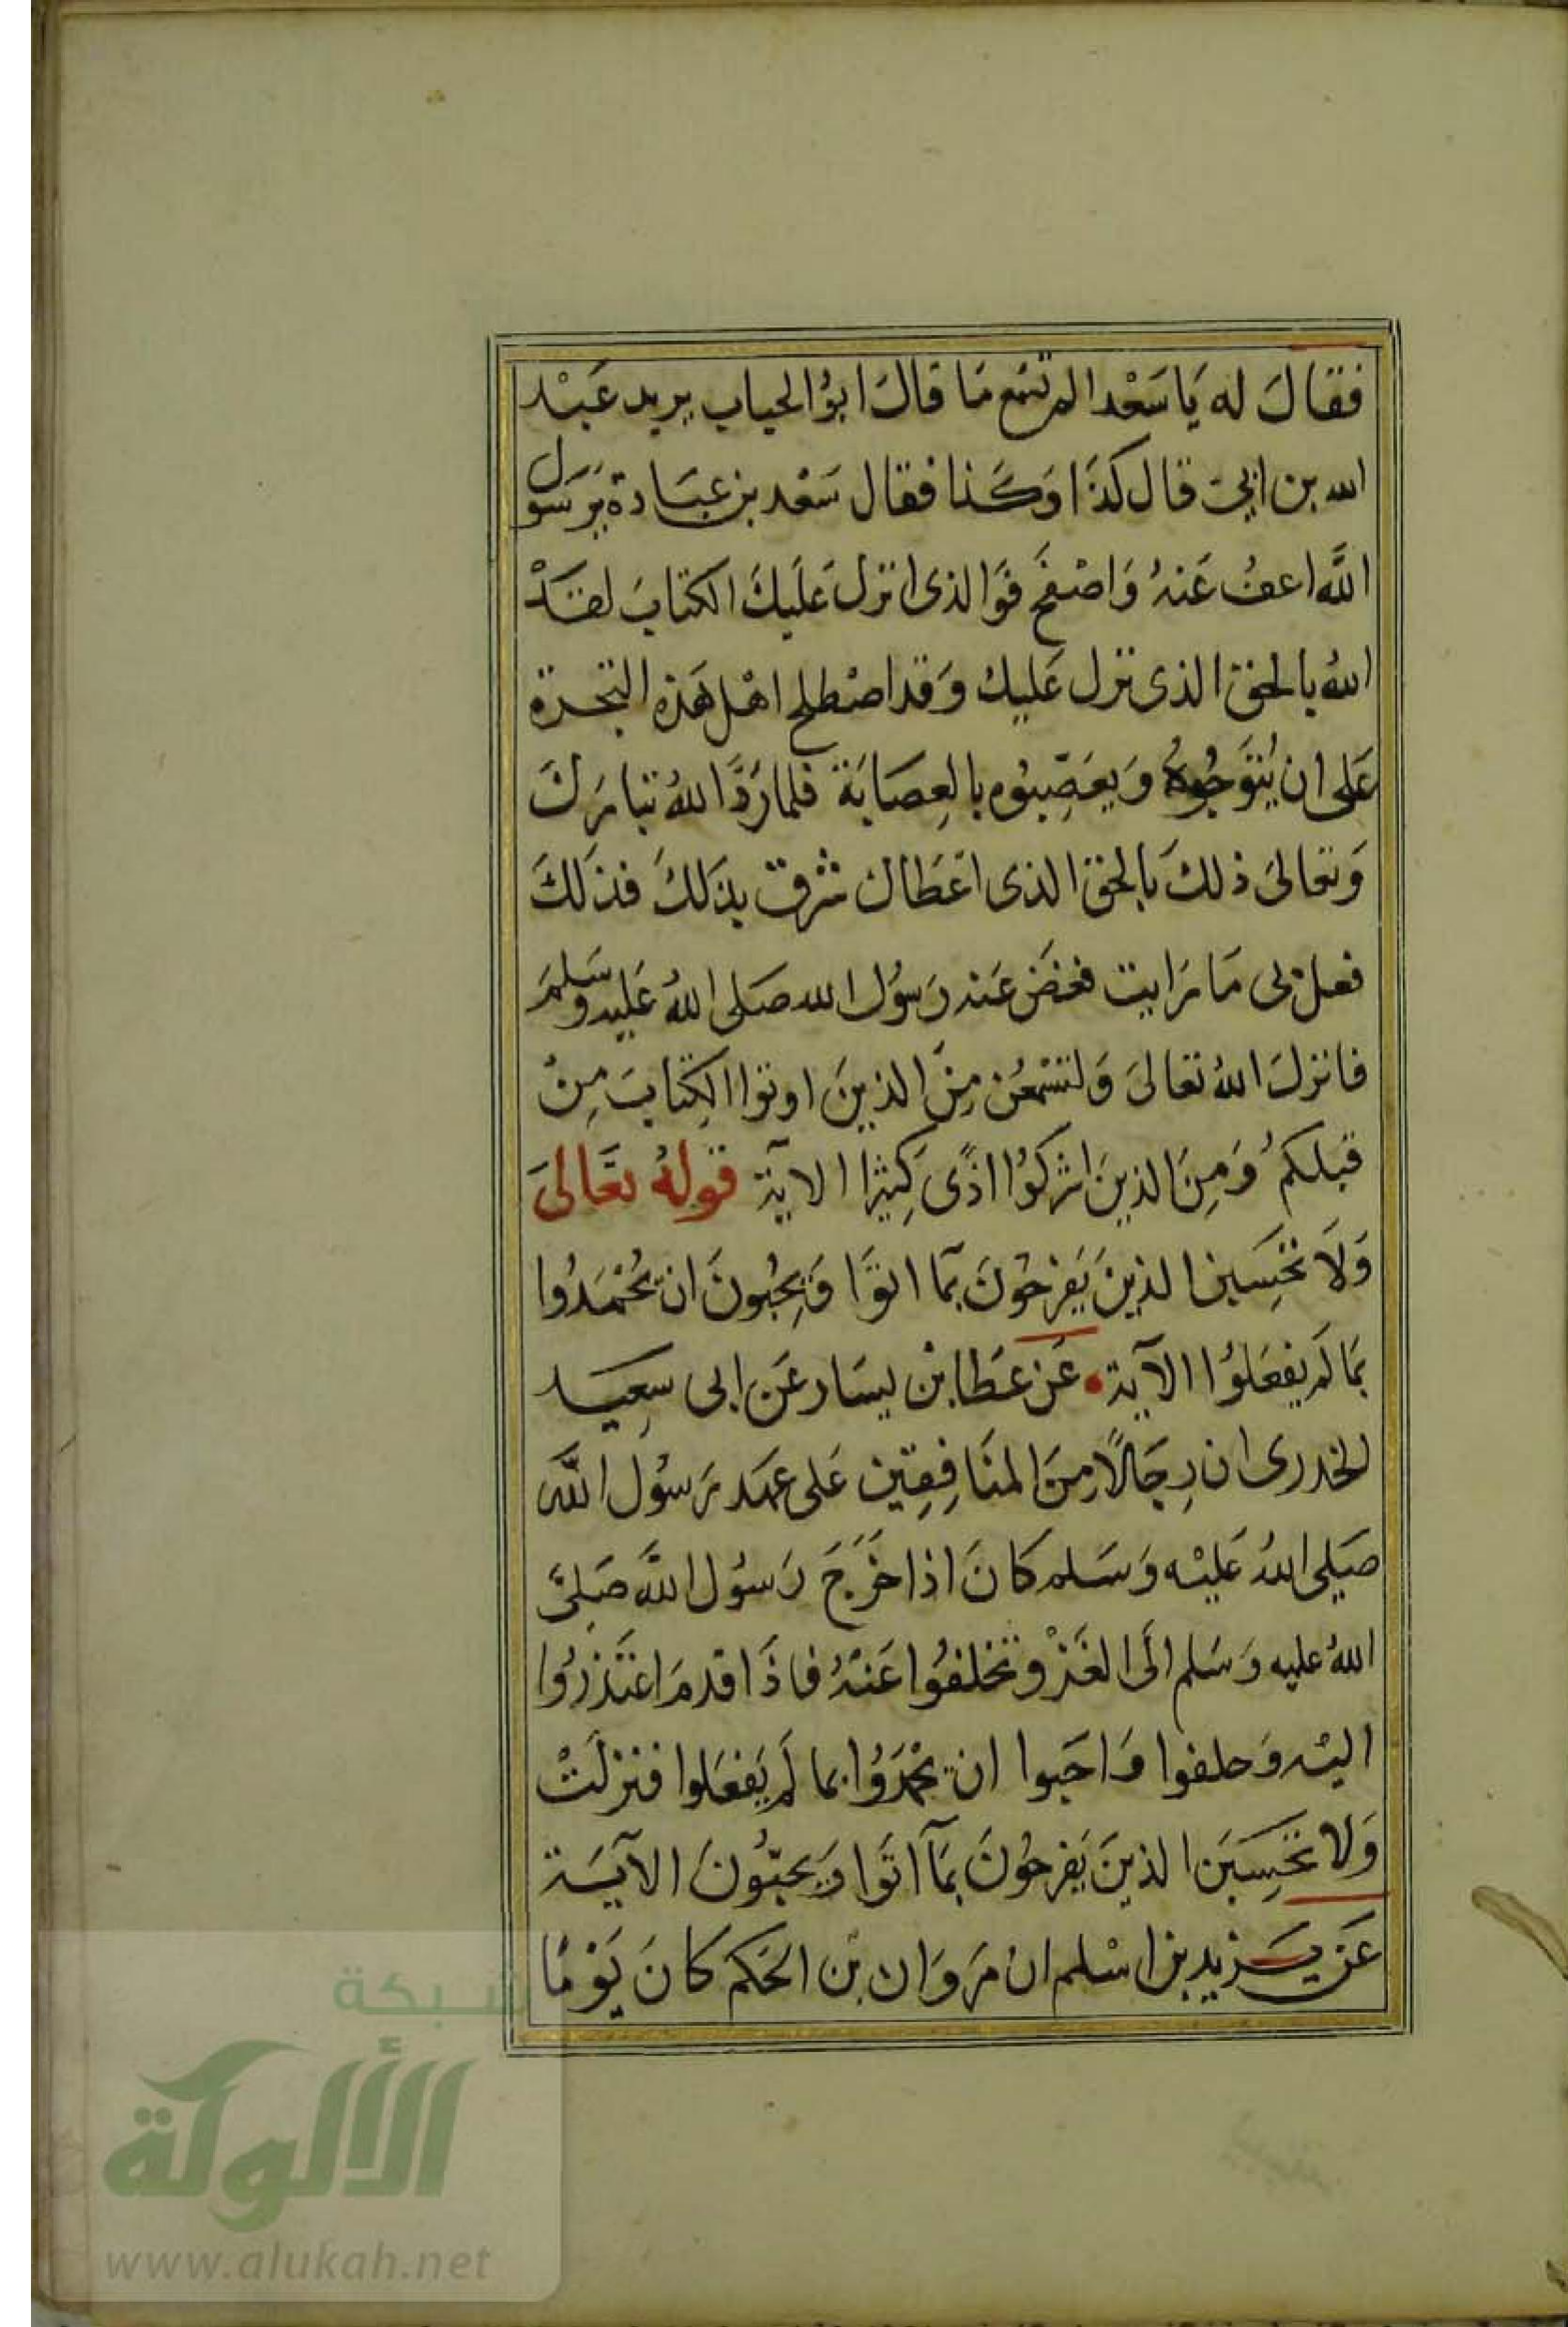 فقالَ له يَا سَعْد الم تسمع مَا قالَ ابوُ الحباب يريد عَبْد
الله بن ابي قال كذَا وَكَذا فقال سَعْد بن عبَادة يرَسَول
اللَّه اعفُ عَنهُ وَاصْفحَ فوَالذى انزل عَليكَ الكتابَ لقَدْ
اللهُ بالحق الذى نزل عَليك وَقد اصْطلح اهْل هَذه البحرة
عَلى ان يُتَوَجُوهُ وَيعَصِّبوُه بالعِصَابَة فلما رَدَّ اللهُ تبارَكَ
وَتعَالىَ ذلكَ بَالحق الذى اعَطاك شرق بذلكَ فذلكَ
فعل بى مَا رَايت فغضَ عَنه رَسوُل الله صَلى اللهُ عَليه وسَلمَ
فانزلَ اللهُ تعَالىَ وَلتسْمعُن مِنَ الذينَ اوتوا الكِتابَ مِنْ
قبلكم وَمِنَ الذينَ اشركوُا اذًى كثِيرًا الاية قولهُ تعَالىَ
وَلَا تحْسَبن الذينَ يَفرَحُونَ بمَا اتوَا وَيحُبُونَ ان يحُمَدُوا
بمَا لم يفعَلوُا الآية عَن عَطا بن يسَار عَن ابى سعِيد
الخدرى ان رِجَالًا مِنَ المنَافِقِين عَلى عهَد رَسوُل اللَّه
صَلى اللهُ عَليْه وَسَلم كانَ اذا خَرَجَ رَسوُل اللَّه صَلىَ
اللهُ عليه وَسَلم الَى الغَزْو تخلفوُا عَنهُ فاذَا قدمَ اعتَذرُوا
اليْه وَحلفوا وَاحَبوا ان يحْمدَوُا بما لَم يَفعَلوا فنزلَتْ
وَلا تحَسِبَن الذينَ يَفرحُونَ بمَآ اتَوا وَيحبُّونَ الآيَة
عَن يَزيد بن اسْلم ان مَروَان بن الحَكم كانَ يَوْمًا
شبكة
الألوكة
www.alukah.net